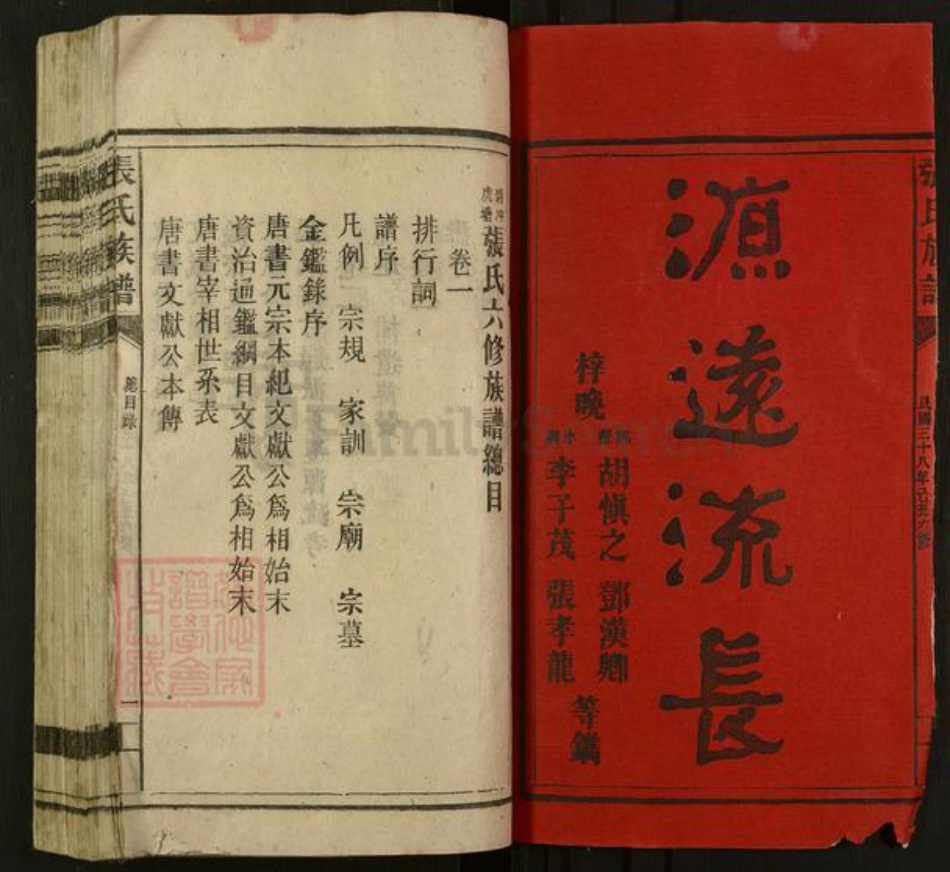 源遠流長
梓晚
胡愼之 鄧漢卿
李子茂 張孝龍
等鐫
民國三十八年己丑六修
張氏六修族譜總目
卷一
排行詞
譜序
凡例 宗規 家訓 宗廟 宗墓
金鑑錄序
唐書元宗本紀文獻公爲相始末
資治通鑑綱目文獻公爲相始末
唐書宰相世系表
唐書文獻公本傳
張氏族譜
總目錄
一
FamilySearch